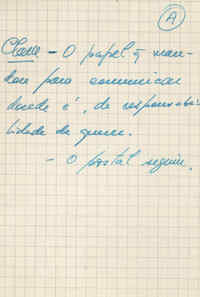 A
Classe - O papel q man-
dou para comunicar
donde é, de responsabi-
lidade de quem.
- O postal seguiu.